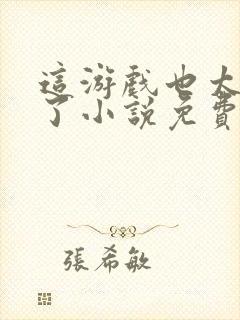 這游戲也太
了小說免費
張希敏